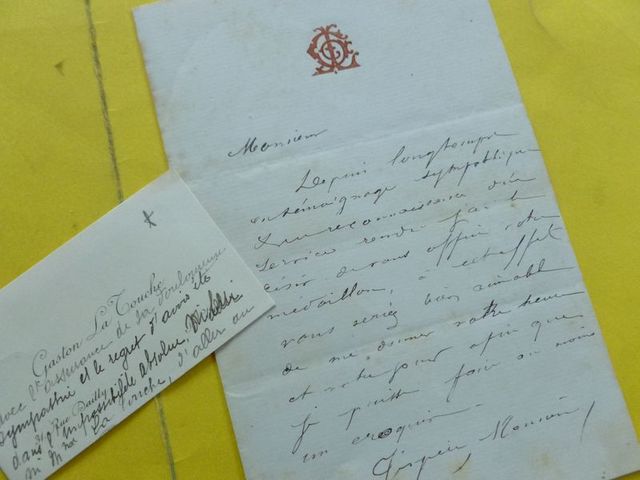 Monsieur
Depuis longtemps
en témoignage sympathique
d'une reconnaissance d'un
service rendu j'ai le
désir de vous offrir votre
médaillon, à cet effet
vous seriez bien aimable
de me donner votre heure
et votre jour afin que
je puisse faire au moins
un croquis.
J'espère, Monsieur,
Gaston La Touche
avec l'assurance de sa douloureuse
sympathie et le regret d'avoir été
31, Rue Dailly
dans l'impossibilité absolue,
M Mme La Touche, d'aller au